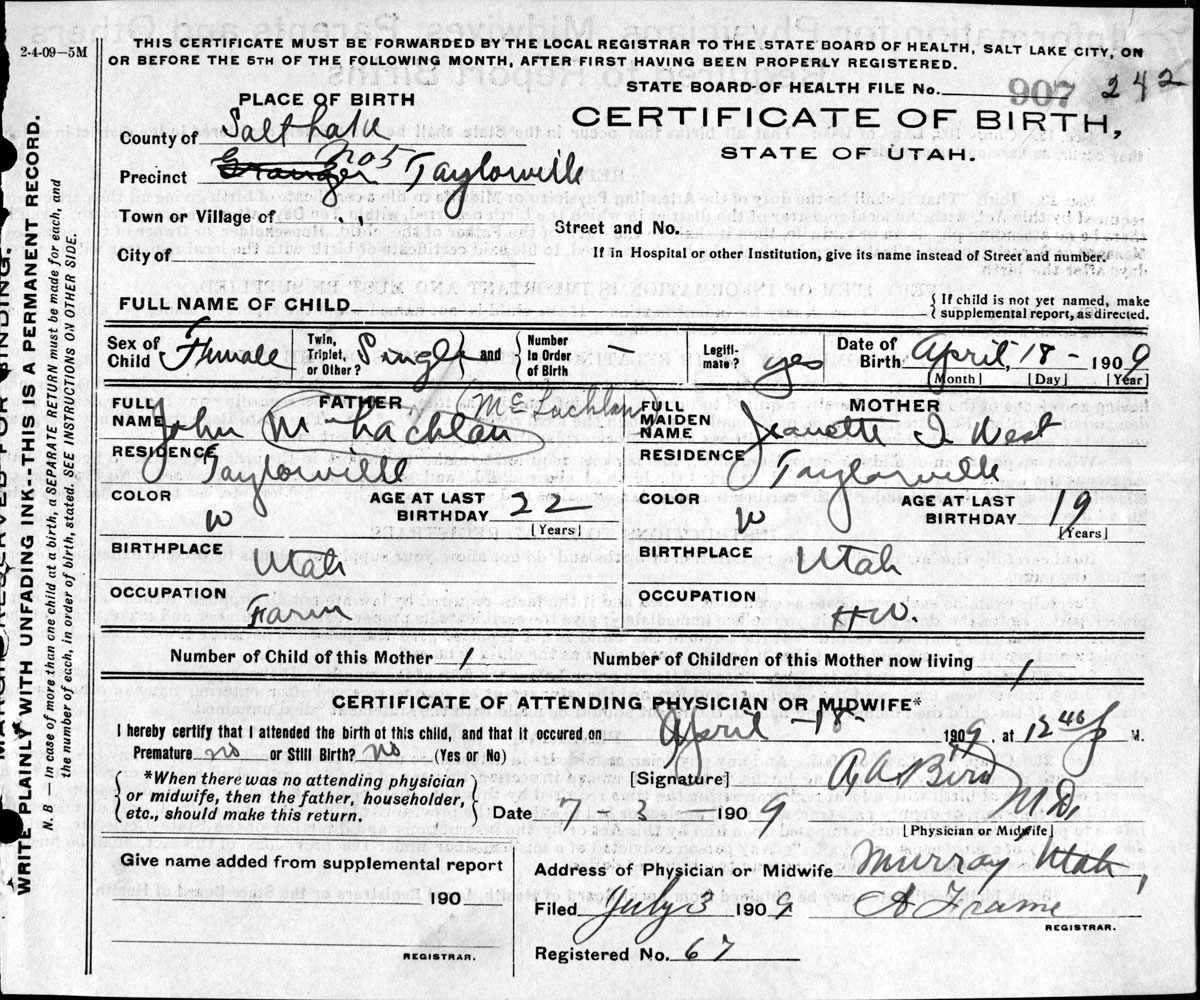 2-4-09—5M
THIS CERTIFICATE MUST BE FORWARDED BY THE LOCAL REGISTRAR TO THE STATE BOARD OF HEALTH, SALT LAKE CITY, ON
OR BEFORE THE 5TH OF THE FOLLOWING MONTH, AFTER FIRST HAVING BEEN PROPERLY REGISTERED.
STATE BOARD OF HEALTH FILE No. 907 242
PLACE OF BIRTH
CERTIFICATE OF BIRTH,
STATE OF UTAH.
County of Salt Lake
Precinct Granger no 5 Taylorville
Town or Village of " "
Street and No.
City of
If in Hospital or other Institution, give its name instead of Street and number.
FULL NAME OF CHILD
{ If child is not yet named, make
supplemental report, as directed.
Sex of Child Female
Twin, Triplet, or Other? Single and { Number In Order of Birth —
Legiti-mate? yes
Date of Birth April, 18 - 1909
[Month] [Day] [Year]
FATHER
FULL NAME John McLachlan (McLachlan)
RESIDENCE Taylorville
COLOR W
AGE AT LAST BIRTHDAY 22
[Years]
BIRTHPLACE Utah
OCCUPATION Farm
MOTHER
FULL MAIDEN NAME Jeanette I West
RESIDENCE Taylorville
COLOR W
AGE AT LAST BIRTHDAY 19
[Years]
BIRTHPLACE Utah
OCCUPATION HW.
Number of Child of this Mother 1
Number of Children of this Mother now living 1
CERTIFICATE OF ATTENDING PHYSICIAN OR MIDWIFE*
I hereby certify that I attended the birth of this child, and that it occured on April -18- 1909, at 12 40 P M.
Premature no or Still Birth? no (Yes or No)
{ *When there was no attending physician
or midwife, then the father, householder,
etc., should make this return. }
[Signature] A A Bird M.D.
[Physician or Midwife]
Date 7 - 3 - 1909
Give name added from supplemental report
190
REGISTRAR.
Address of Physician or Midwife Murray Utah,
Filed July 3 1909 A Frame
REGISTRAR.
Registered No. 67
WRITE PLAINLY WITH UNFADING INK--THIS IS A PERMANENT RECORD.
N. B — In case of more than one child at a birth, a SEPARATE RETURN must be made for each, and
the number of each, in order of birth, stated. SEE INSTRUCTIONS ON OTHER SIDE.